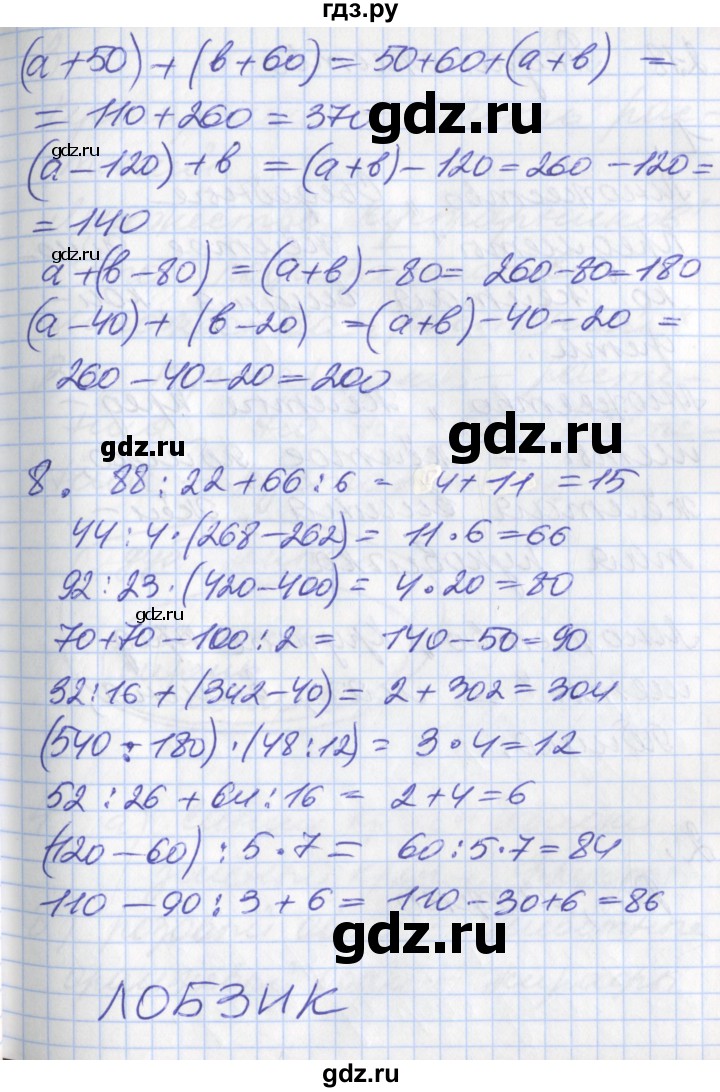 гдз.ру
(а+50)+(в+60)= 50+60+(а+в) =
= 110+260=370
gdz.ru
gdz.ru
(а-120)+в =(а+в)-120=260-120=
=140
gdz.ru
а+(в-80) =(а+в)-80= 260-80=180
(а-40)+(в-20) =(а+в)-40-20 =
260-40-20=200
gdz.ru
gdz.ru
8. 88:22+66:6 = 4+11 =15
44:4·(268-262)= 11·6=66
92:23·(420-400)= 4·20=80
gdz.ru
70+70-100:2 = 140-50=90
32:16+(342-40)= 2+302=304
(540:180)·(48:12)= 3·4=12
gdz.ru
52:26+64:16= 2+4=6
(120-60):5·7= 60:5·7=84
110-90:3+6= 110-30+6=86
gdz.ru
ЛОБЗИК
gdz.ru